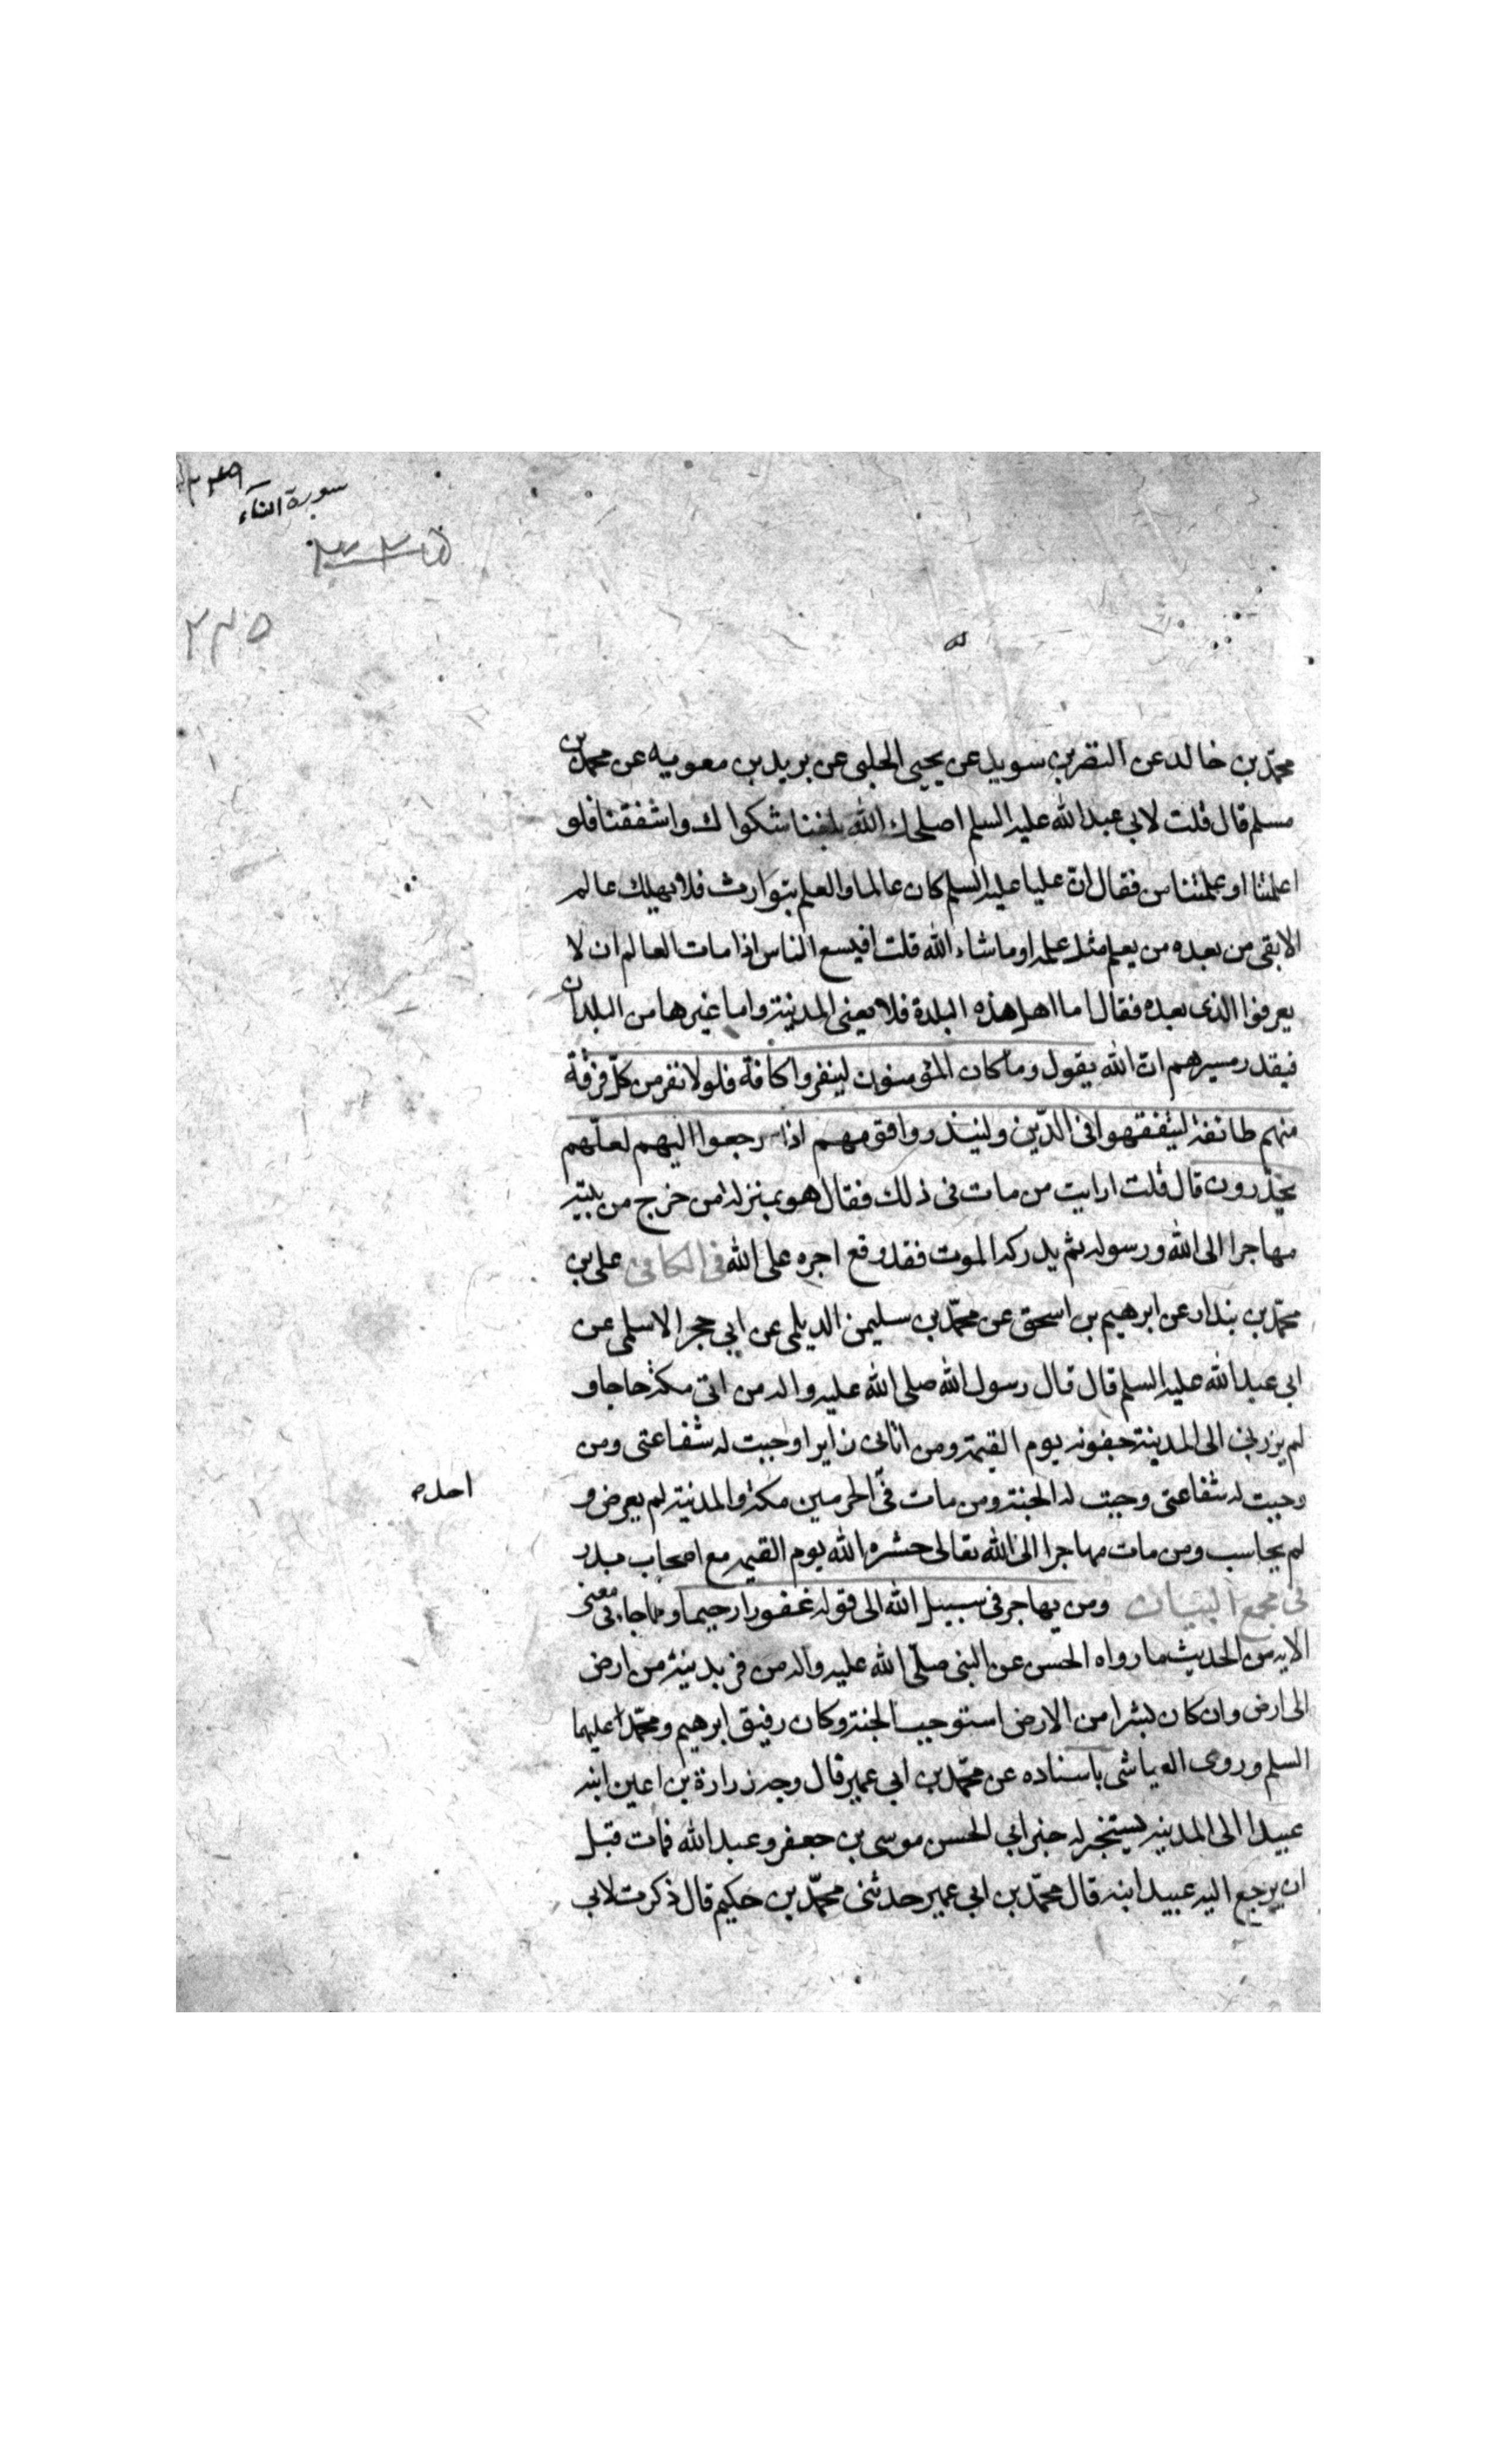 سورة النساء
٢٣٥
محمّد بن خالد عن النضر بن سويد عن يحيى الحلبى عن بريد بن معوية عن محمد بن
مسلم قال قلت لابى عبد الله عليه السلم اصلحك الله بلغنا شكواك واشفقنا فلو
اعلمتنا او علمتنا من فقال انّ عليا عليه السلم كان عالما والعلم يتوارث فلا يهلك عالم
الا بقى من بعده من يعلم مثل علمه او ما شاء الله قلت افيسع الناس اذا مات العالم ان لا
يعرفوا الذى بعده فقال اما اهل هذه البلدة فلا يعنى المدينة واما غيرها من البلدان
فبقدر مسيرهم انّ الله يقول وما كان المؤمنون لينفروا كافة فلولا نفر من كلّ فرقة
منهم طائفة ليتفقهوا فى الدّين ولينذروا قومهم اذا رجعوا اليهم لعلّهم
يحذرون قال قلت ارايت من مات فى ذلك فقال هو بمنزلة من خرج من بيته
مهاجرا الى الله ورسوله ثم يدركه الموت فقد وقع اجره على الله فى الكافى على بن
محمّد بن بندار عن ابرهيم بن اسحق عن محمّد بن سليمن الديلمى عن ابى حجر الاسلمى عن
ابى عبد الله عليه السلم قال قال رسول الله صلى الله عليه واله من اتى مكة حاجا و
لم يزرنى الى المدينة جفوته يوم القيمة ومن اتانى زايرا وجبت له شفاعتى ومن
وجبت له شفاعتى وجبت له الجنة ومن مات فى الحرمين مكة والمدينة لم يعرض و
احد
لم يحاسب ومن مات مهاجرا الى الله تعالى حشره الله يوم القيمة مع اصحاب بدر
فى مجمع البيان ومن يهاجر فى سبيل الله الى قوله غفورا رحيما ومما جاء فى معنى
الاية من الحديث ما رواه الحسن عن النبى صلّى الله عليه واله من فر بدينه من ارض
الى ارض وان كان شبرا من الارض استوجب الجنة وكان رفيق ابرهيم ومحمّد عليهما
السلم وروى العياشى باسناده عن محمّد بن ابى عمير قال وجه زرارة بن اعين ابنه
عبيدا الى المدينة ليستخبر له خبر ابى الحسن موسى بن جعفر وعبد الله فمات قبل
ان يرجع اليه عبيد ابنه قال محمّد بن ابى عمير حدثنى محمّد بن حكيم قال ذكرت لابى